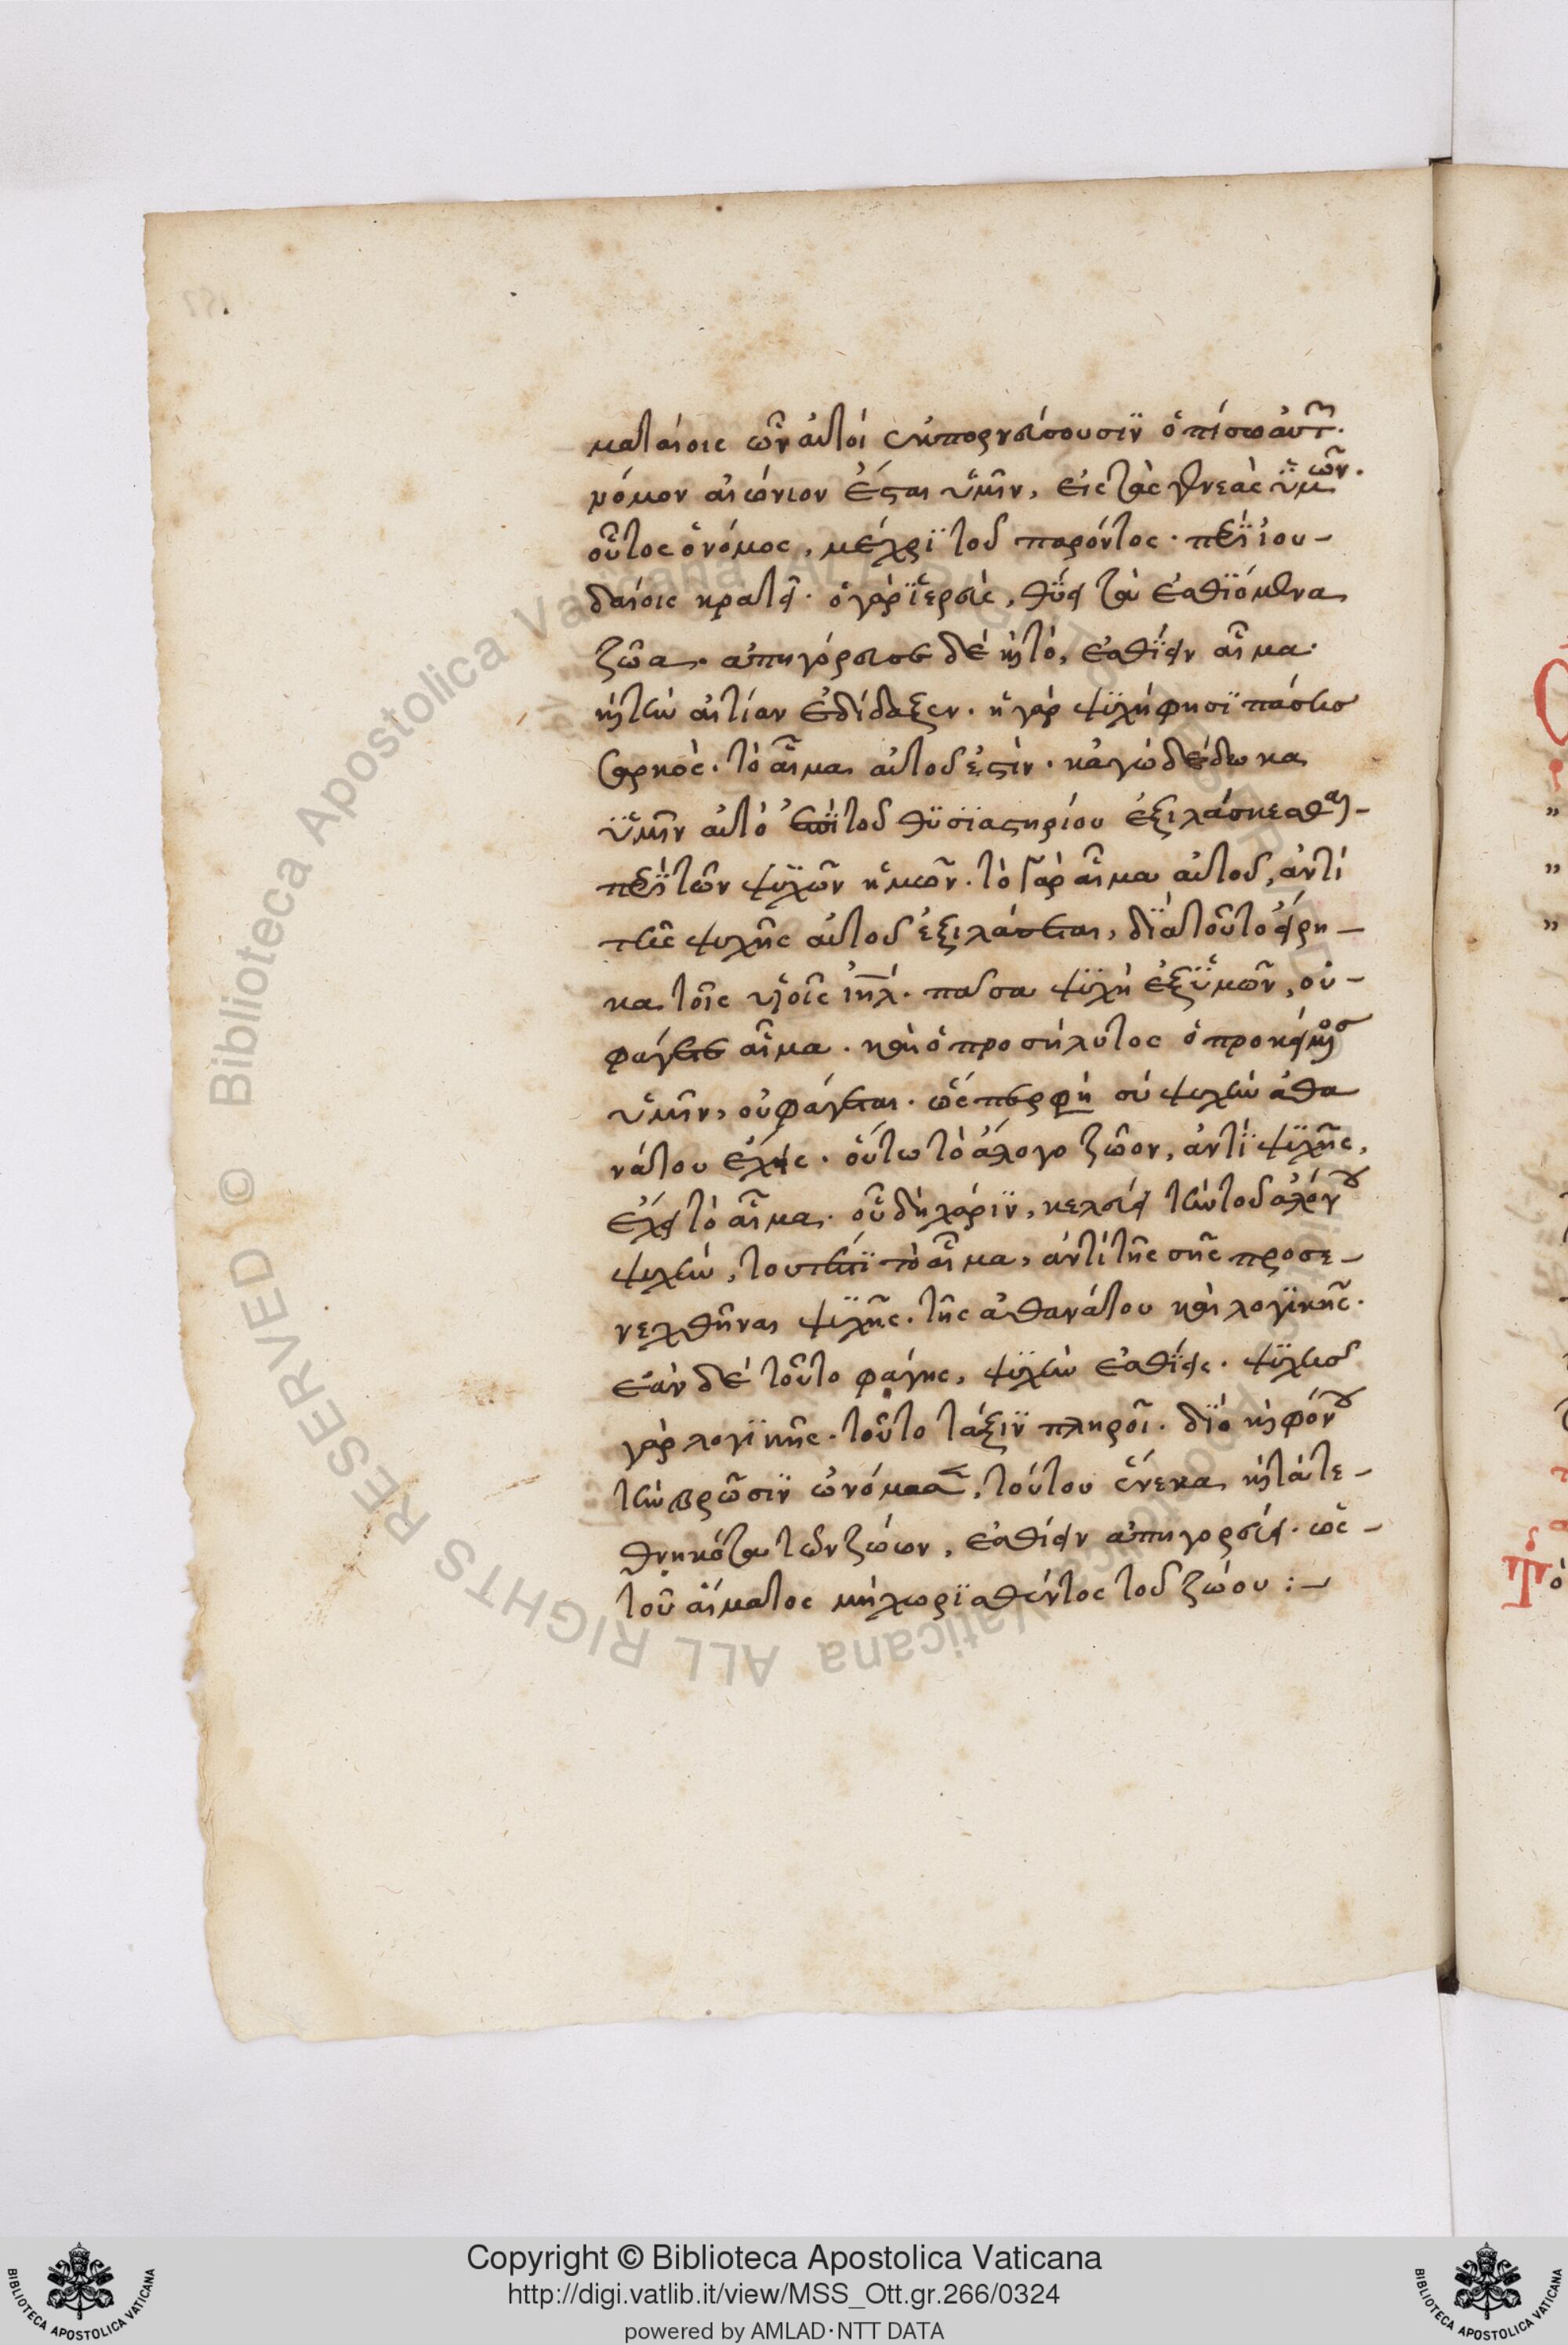 ματαίοις ὧν αὐτοὶ ἐκπορνεύσουσϊν ὀπίσω αὐτ.
νόμον αἰώνιον ἔσται ὑμῖν, εἰς τὰς γενεὰς ὑμῶν.
οὗτος ὁ νόμος, μέχρϊ τοῦ παρόντος. περὶ ἰου-
δαίοις κρατεῖ. ὁ γὰρ ἱερεὺς, θύει τὰ ἐσθϊόμενα
ζῶα. ἀπηγόρευσε δὲ κỳ τὸ, ἐσθίειν αἷμα.
κỳ τὴν αἰτίαν ἐδίδαξεν. ἡ γὰρ ψϋχὴ φησϊ πάσης
σαρκὸς. τὸ αἷμα αὐτοῦ ἐστὶν. κἀγὼ δέδωκα
ὑμῖν αὐτὸ ἐπὶ τοῦ θϋσϊαστηρίου ἐξιλάσκεσθαι-
περὶ τῶν ψϋχῶν ἡμῶν. τὸ γὰρ αἷμα αὐτοῦ, ἀντὶ
τῆς ψυχῆς αὐτοῦ ἐξιλάσεται, δϊὰ τοῦτο εἴρη-
κα τοῖς υἱοῖς ἰηλ. πᾶσα ψϋχὴ ἐξ ὑμῶν, οὐ-
φάγεται αἷμα. καὶ ὁ προσήλυτος ὁ προκείμενος
ὑμῖν, οὐ φάγεται. ὥσπερ φη σύ ψυχὴν ἀθα
νάτου ἔχεις. οὕτω τὸ ἄλογο ζῶον, ἀντὶ ψϋχῆς,
ἔχει τὸ αἷμα. οὗ δὴ χάρϊν, κελεύει τὴν τοῦ ἀλόγου
ψυχὴν, τουτέστϊ τὸ αἷμα, ἀντὶ τῆς σῆς προσε-
νεχθῆναι ψϋχῆς. τῆς ἀθανάτου καὶ λογϊκῆς.
ἐὰν δὲ τοῦτο φάγῃς, ψϋχὴν ἐσθίεις. ψϋχῆς
γὰρ λογϊκῆς. τοῦτο τάξϊν πληροῖ. δϊὸ κỳ φόνου
τὴν βρῶσϊν ὠνόμασε, τούτου ἕνεκα κỳ τὰ τε-
θνηκότα τῶν ζώων, ἐσθίειν ἀπηγορεύει. ὡς-
τοῦ αἵματος μὴ χωρϊσθέντος τοῦ ζώου :-
Copyright © Biblioteca Apostolica Vaticana
http://digi.vatlib.it/view/MSS_Ott.gr.266/0324
powered by AMLAD·NTT DATA